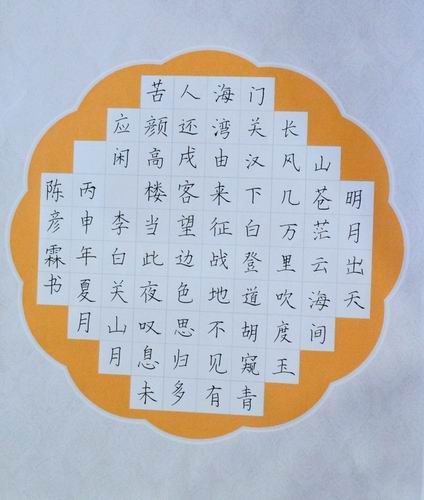 明月出天
山苍茫云海间
长风几万里吹度玉
门关汉下白登道胡窥青
海湾由来征战地不见有
人还戍客望边色思归多
苦颜高楼当此夜叹息未
应闲 李白关山月
丙申年夏月
陈彦霖书